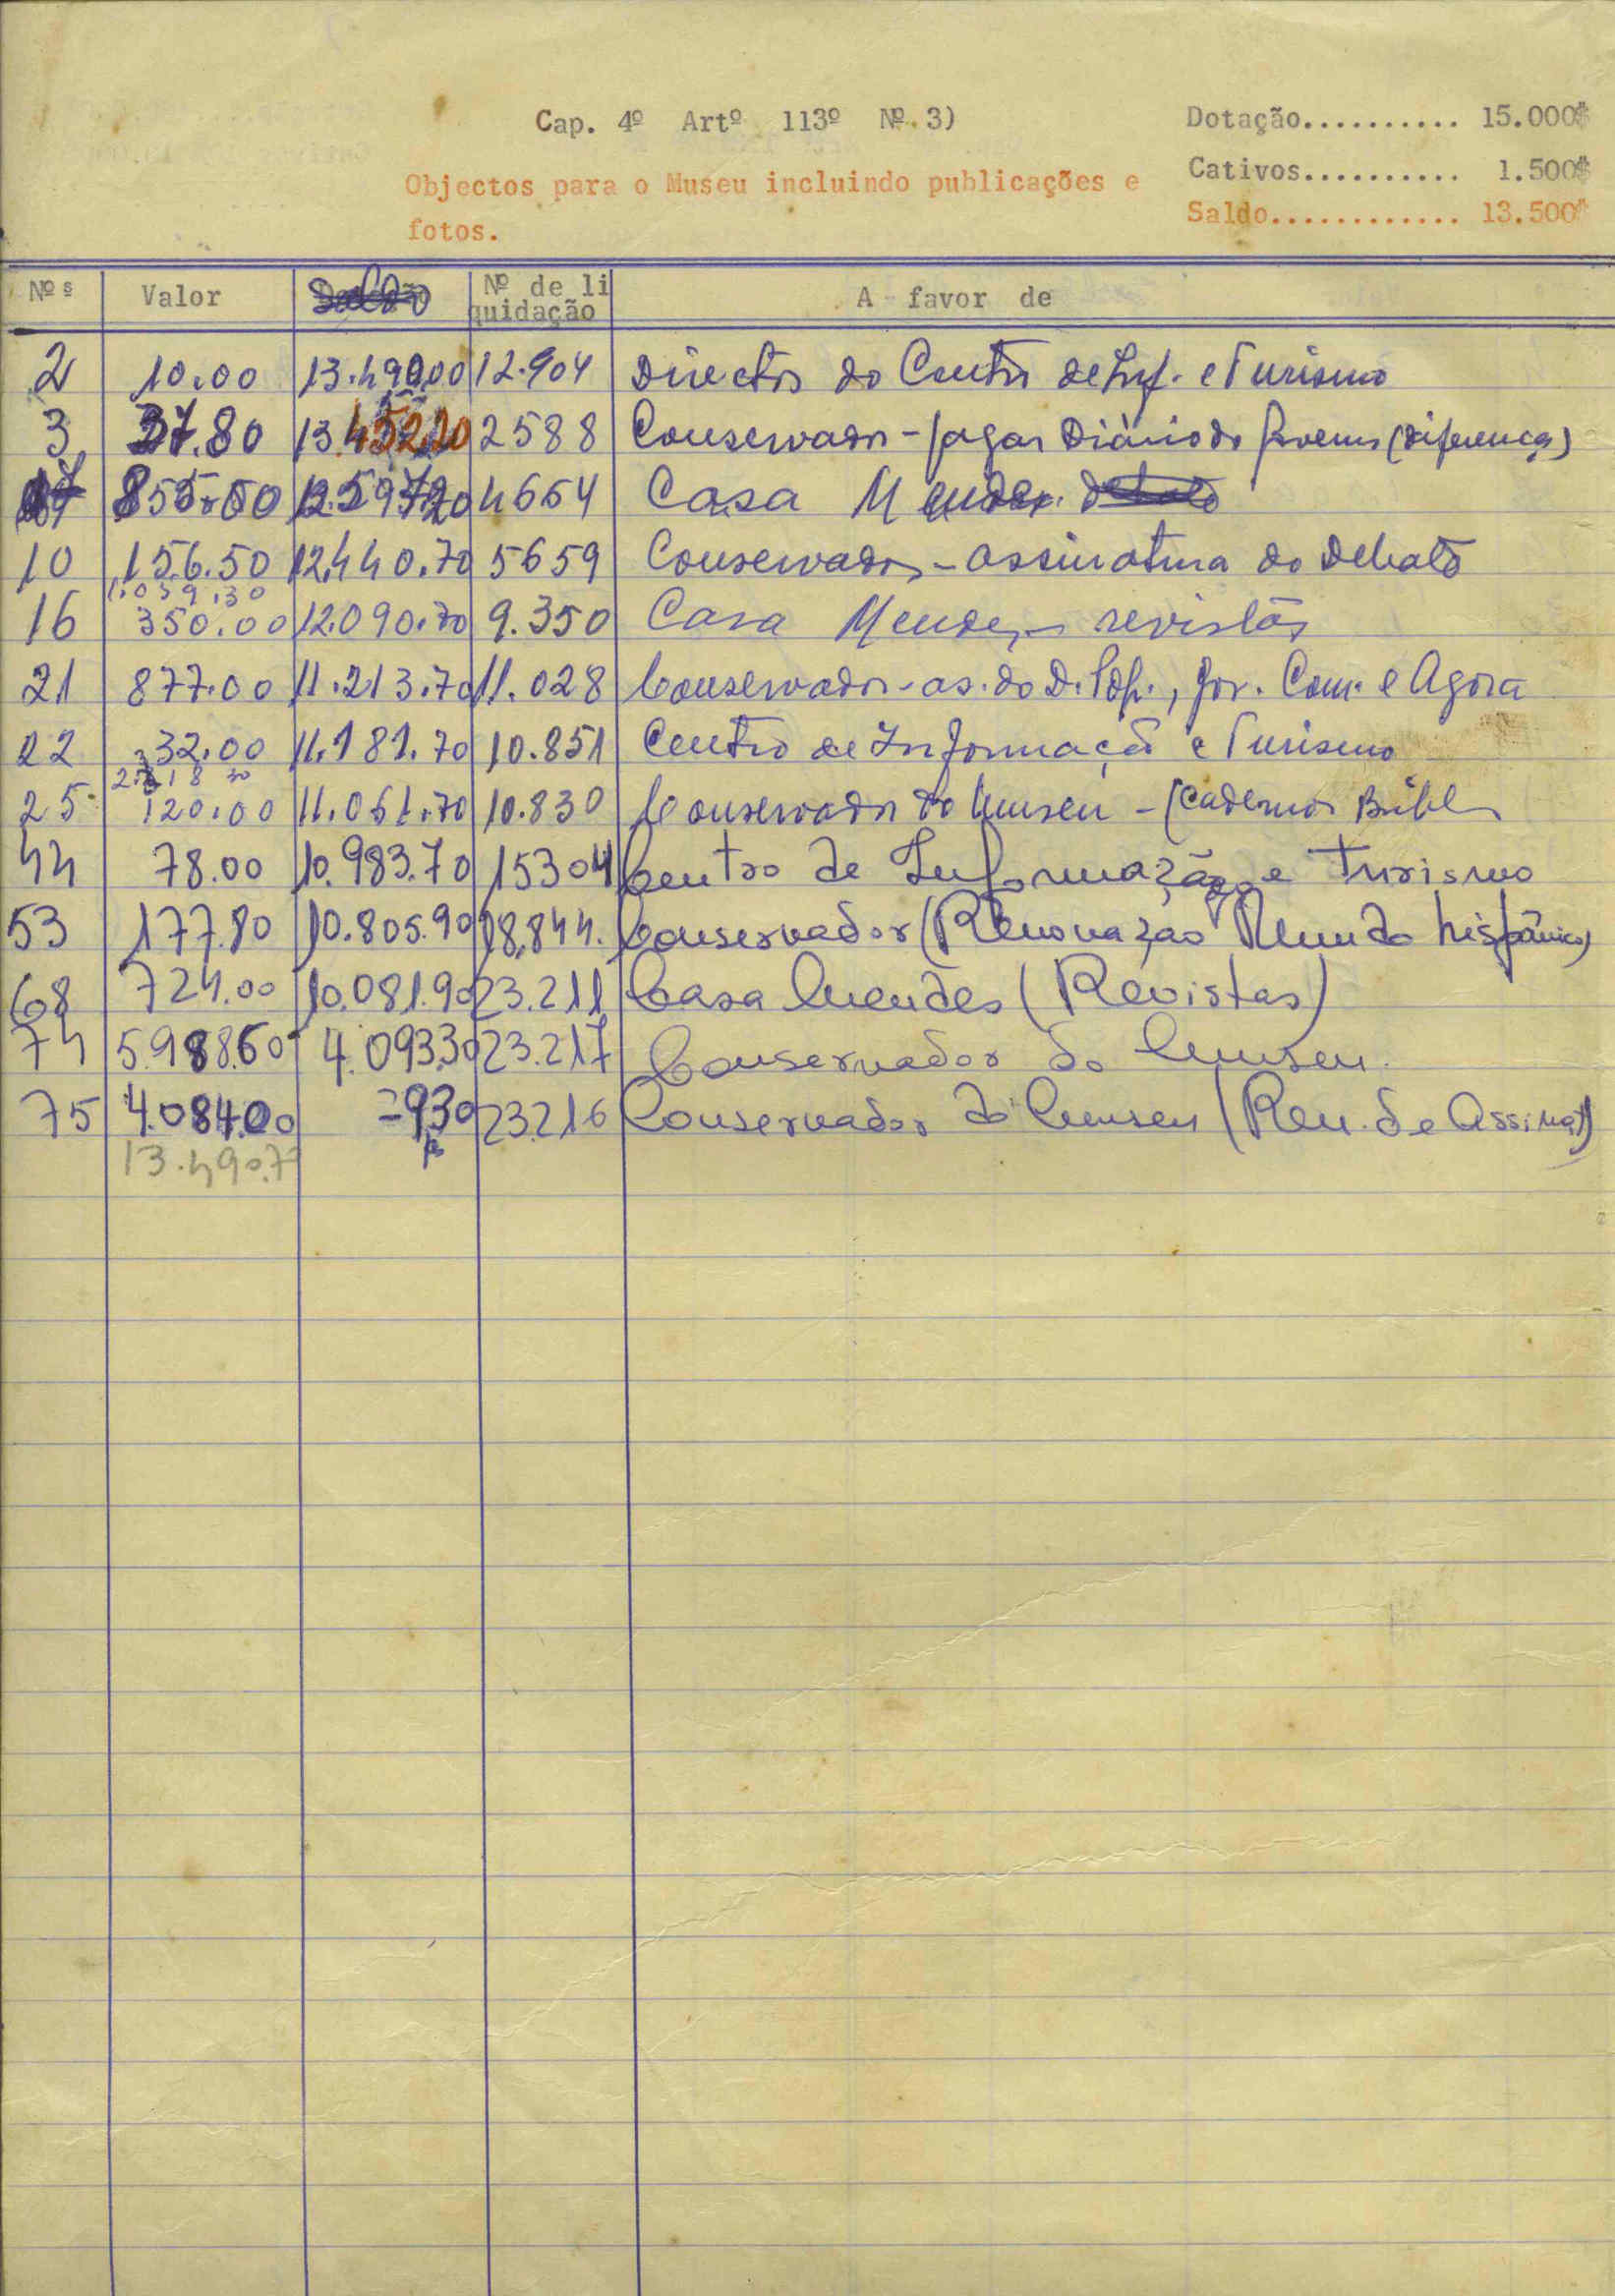 Cap. 4º Artº 113º Nº 3)
Dotação.......... 15.000$
Cativos.......... 1.500$
Objectos para o Museu incluindo publicações e
Saldo............ 13.500$
fotos.
Nºs Valor Saldo Nº de li
quidação A favor de
2 10.00 13.490.00 12.904 Director do Centro de Inf. e Turismo
3 37.80 13.452.20 2588 Conservador - pagar Diário do Governo (diferença)
7 855.00 12.597.20 4654 Casa Mendes
10 156.50 12.440.70 5659 Conservador - assinatura do Debate
1.059.30
16 350.00 12.090.70 9.350 Casa Mendes - revistas
21 877.00 11.213.70 11.028 Conservador - as. do D. Pop., Jor. Com. e Agora
22 32.00 11.181.70 10.851 Centro de Informação e Turismo
2.318 30
25 120.00 11.061.70 10.830 Conservador do Museu - (Cadernos Bibl
44 78.00 10.983.70 15304 Centro de Informação e Turismo
53 177.80 10.805.90 18.844. Conservador (Renovação Mundo hispânico)
68 724.00 10.081.90 23.211 Casa Mendes (Revistas)
74 5.988.60 4.093.30 23.217 Conservador do Museu.
75 4.084.00 =9.30 23.216 Conservador do Museu (Ren. de Assinat)
13.490.7